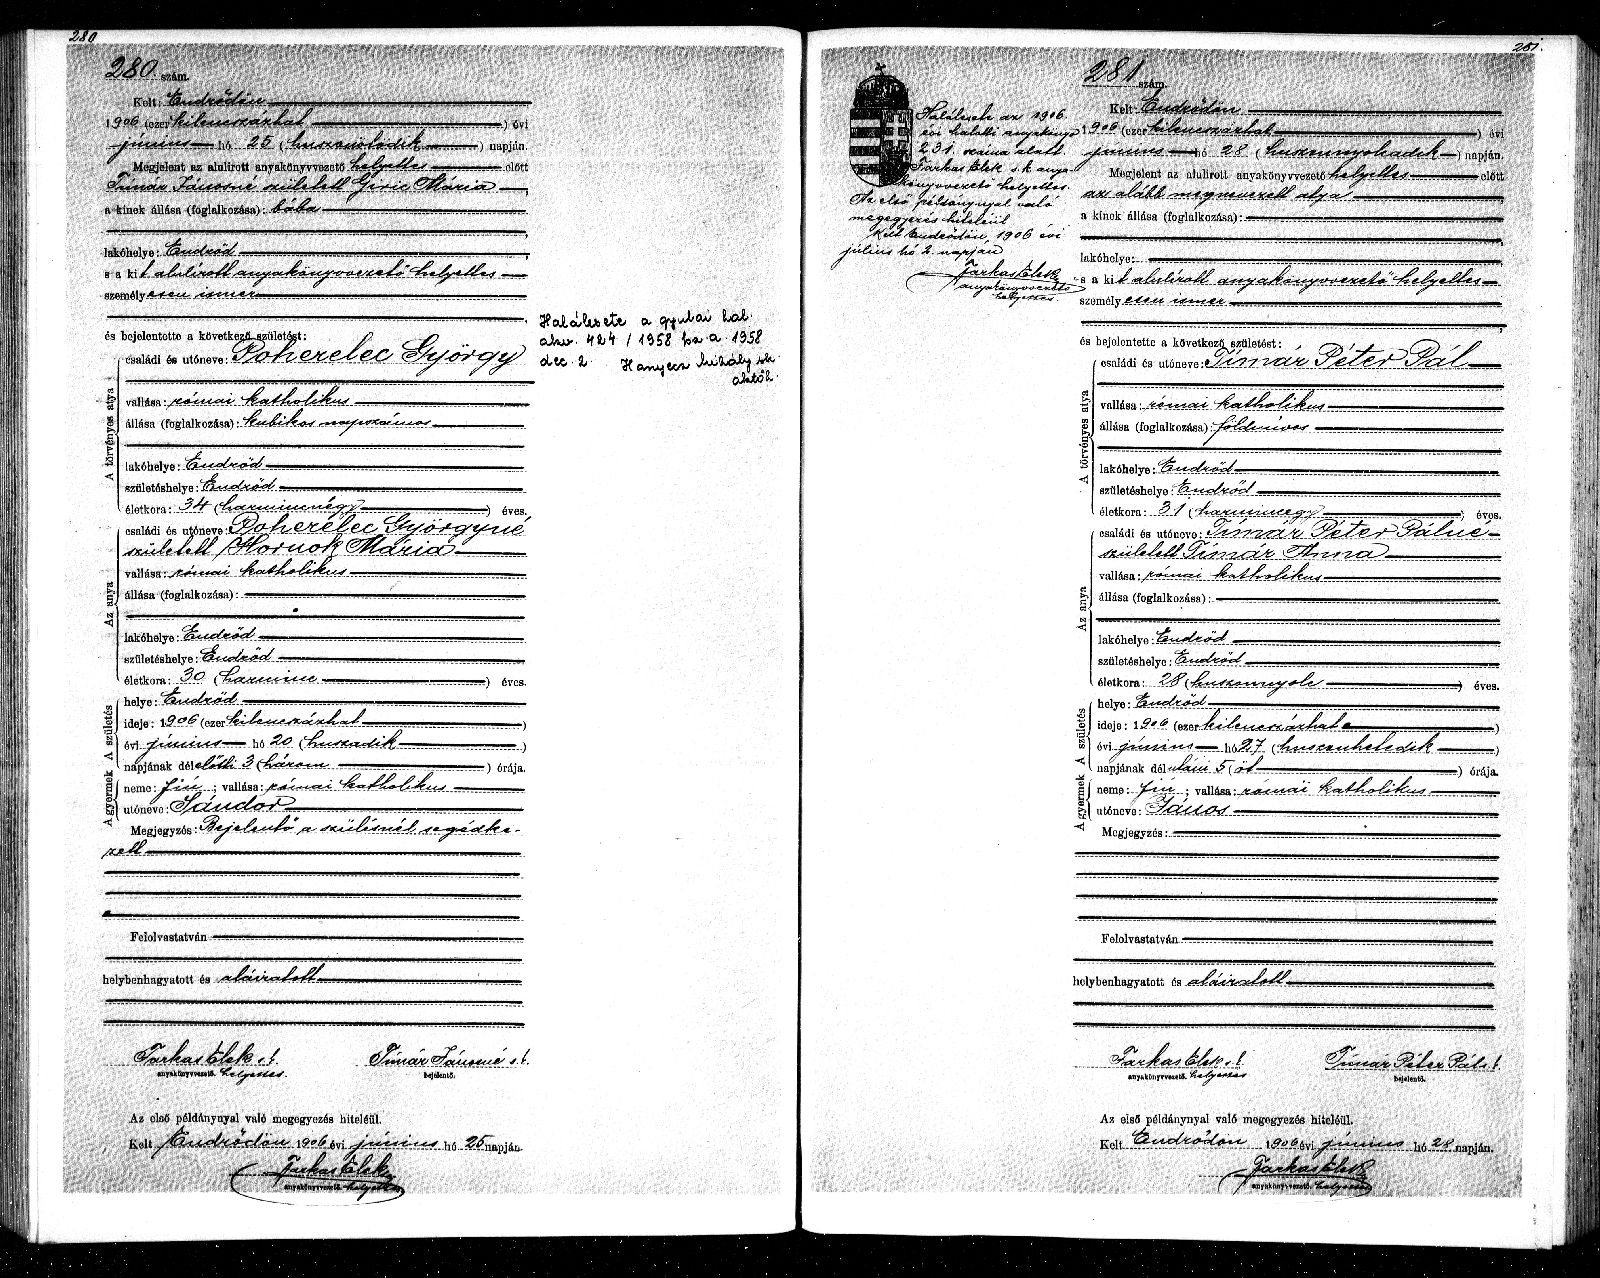 280
280 szám.
Kelt: Endrődön
1906 (ezer kilenczázhat) évi
június hó 25 (huszonötödik) napján.
Megjelent az alulirott anyakönyvvezető helyettes előtt
Tímár Jánosné született Giric Mária,
a kinek állása (foglalkozása): bába
,
lakóhelye: Endrőd
s a kit alulírott anyakönyvvezető helyettes
személyesen ismer
,
és bejelentette a következő születést:
A törvényes atya
családi és utóneve: Poherelec György
vallása: római katholikus
állása (foglalkozása): kubikos napszámos
lakóhelye: Endrőd
születéshelye: Endrőd
életkora: 34 (harmincnégy) éves.
Az anya
családi és utóneve: Poherelec Györgyné
született Hornok Mária
vallása: római katholikus
állása (foglalkozása):
lakóhelye: Endrőd
születéshelye: Endrőd
életkora: 30 (harminc) éves.
A születés
helye: Endrőd
ideje: 1906 (ezer kilenczázhat)
évi június hó 20 (huszadik)
napjának délelőtti 3 (három) órája.
A gyermek
neme: fiú; vallása: római katholikus
utóneve: Sándor
Megjegyzés: Bejelentő a szülésnél segédke-
zett
Felolvastatván
helybenhagyatott és aláiratott
Farkas Elek s. k. Tímár Jánosné s. k.
anyakönyvvezető. helyettes. bejelentő.
Az első példánynyal való megegyezés hiteléül.
Kelt Endrődön 1906 évi június hó 25 napján.
Farkas Elek
anyakönyvvezető. helyettes
Halálesete a gyulai hal.
akv. 424 / 1958 ba a 1958
dec 2. Hanyecz Mihály
281.
Halálesete az 1906
évi halotti anyakönyv
231. száma alatt
Farkas Elek s. k. anya-
könyvvezető helyettes.
Az első példánynyal való
megegyezés hiteléül
Kelt Endrődön, 1906 évi
július hó 2. napján
Farkas Elek
anyakönyvvezető
helyettes.
281 szám.
Kelt: Endrődön
1906 (ezer kilenczázhat) évi
június hó 28 (huszonnyolcadik) napján.
Megjelent az alulirott anyakönyvvezető helyettes előtt
az alább megnevezett atya,
a kinek állása (foglalkozása):
,
lakóhelye:
s a kit alulírott anyakönyvvezető helyettes
személyesen ismer.
,
és bejelentette a következő születést:
A törvényes atya
családi és utóneve: Tímár Péter Pál
vallása: római katholikus
állása (foglalkozása): földmíves
lakóhelye: Endrőd
születéshelye: Endrőd
életkora: 31 (harmincegy) éves.
Az anya
családi és utóneve: Tímár Péter Pálné
született Tímár Anna
vallása: római katholikus
állása (foglalkozása):
lakóhelye: Endrőd
születéshelye: Endrőd
életkora: 28 (huszonnyolc) éves.
A születés
helye: Endrőd
ideje: 1906 (ezer kilenczázhat)
évi június hó 27 (huszonhetedik)
napjának délutáni 5 (öt) órája.
A gyermek
neme: fiú; vallása: római katholikus
utóneve: János
Megjegyzés:
Felolvastatván
helybenhagyatott és aláiratott
Farkas Elek s. k. Tímár Péter Pál s. k.
anyakönyvvezető. helyettes bejelentő.
Az első példánynyal való megegyezés hiteléül.
Kelt Endrődön 1906 évi június hó 28 napján.
Farkas Elek
anyakönyvvezető. helyettes